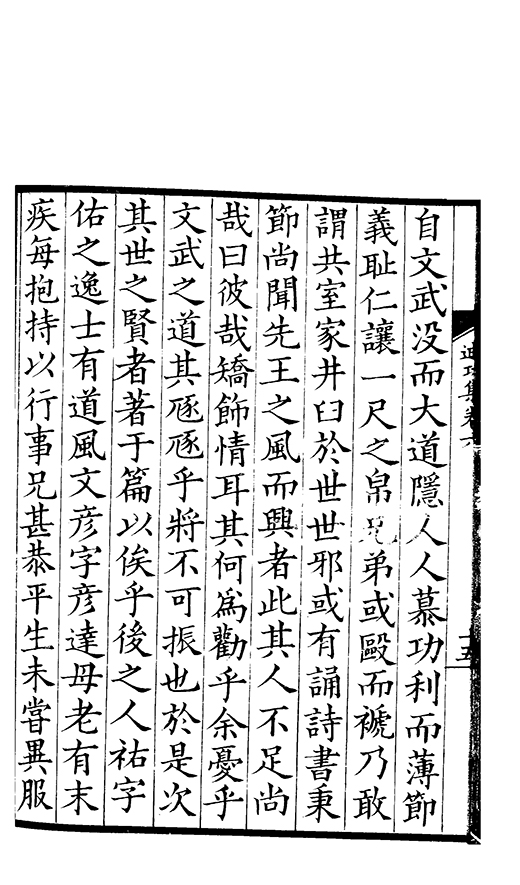 自文武没而大道隱人人慕功利而薄節
義耻仁讓一尺之帛兄弟或毆而褫乃敢
謂共室家井臼於世世邪或有誦詩書秉
節尚聞先王之風而興者此其人不足尚
哉曰彼哉矯飾情耳其何爲勸乎余憂乎
文武之道其豗豗乎將不可振也於是次
其世之賢者著于篇以俟乎後之人祐字
佑之逸士有道風文彦字彦達母老有末
疾每抱持以行事兄甚恭平生未嘗異服
迪功集卷六
十五